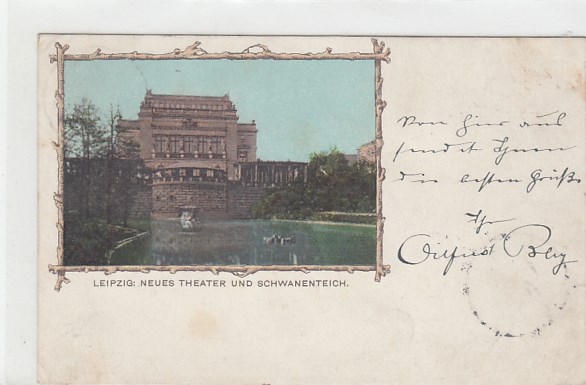 Von hier aus
sendet Ihnen
die besten Grüße
Ihr
LEIPZIG: NEUES THEATER UND SCHWANENTEICH.